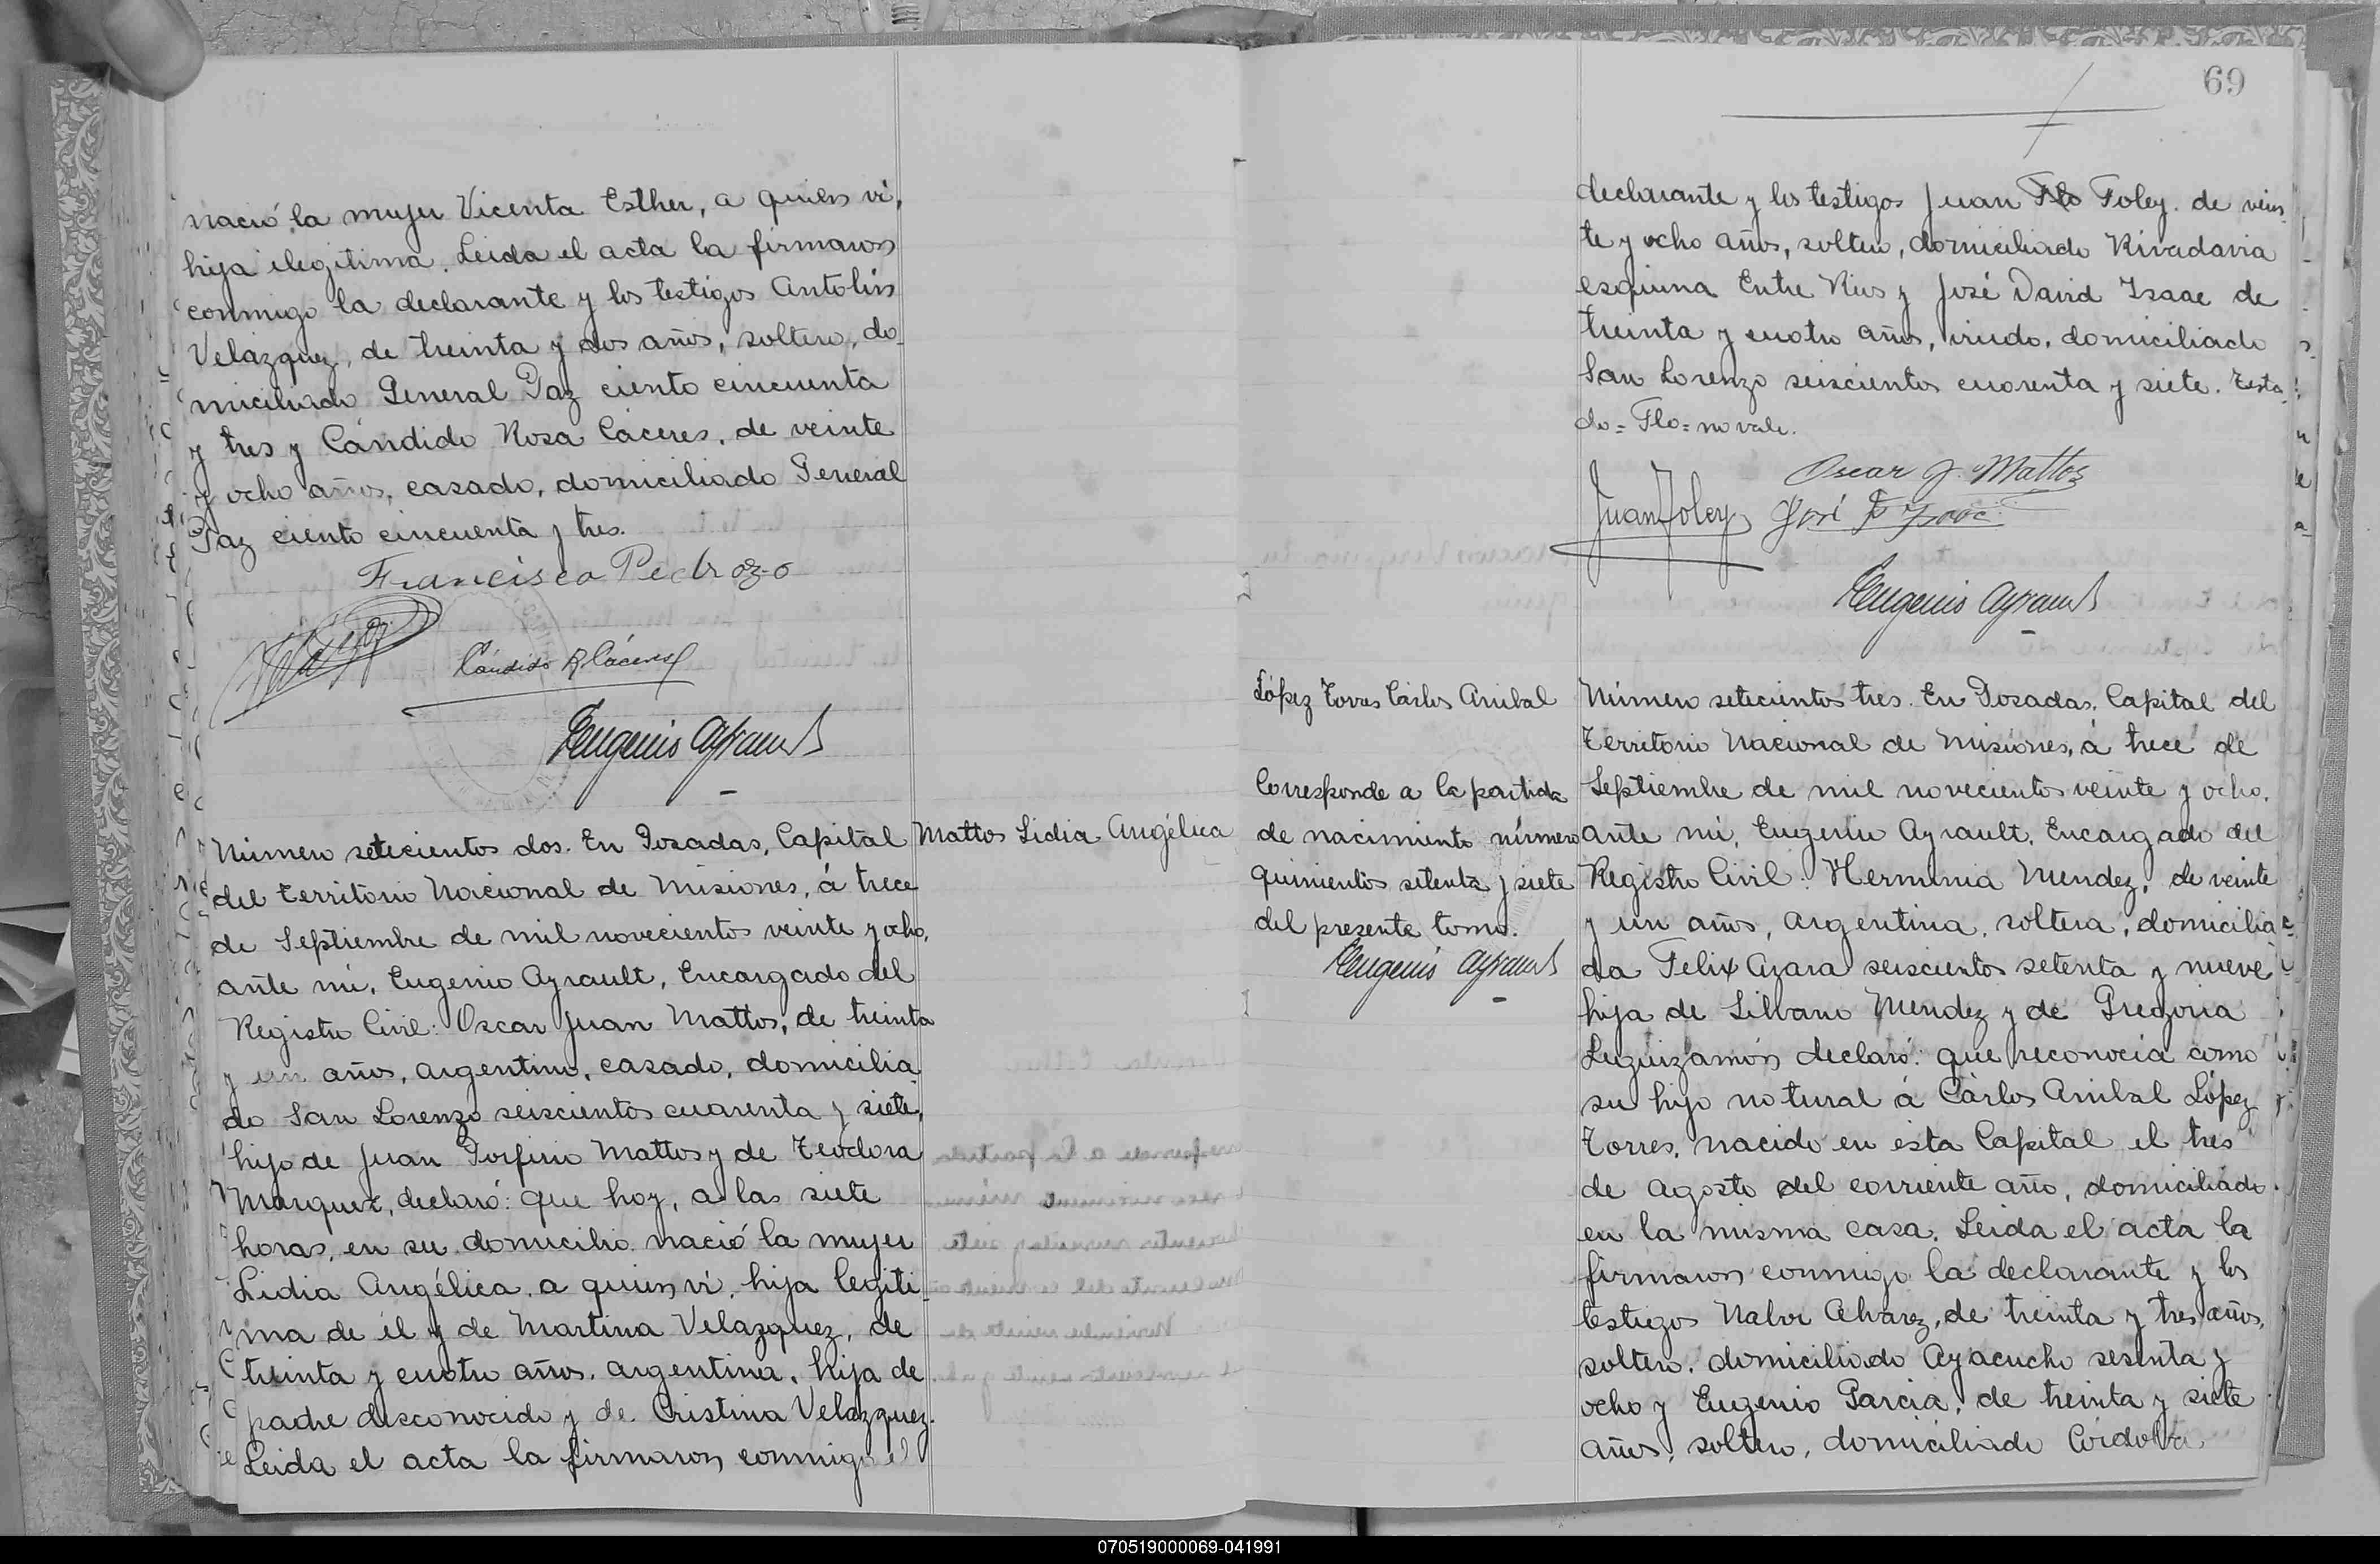 nació la mujer Vicenta Esther, a quien vi,
hija ilegitima. Leida el acta la firmaron
conmigo la declarante y los testigos Antolin
Velázquez, de treinta y dos años, soltero, do-
miciliado General Paz ciento cincuenta
y tres y Cándido Rosa Cáceres, de veinte
y ocho años, casado, domiciliado General
Paz ciento cincuenta y tres.
Francisca Pedrozo
Cándido R. Cáceres
Eugenio Ayrault
Número setecientos dos. En Posadas, Capital
del Territorio Nacional de Misiones, á trece
de Septiembre de mil novecientos veinte y ocho,
ante mi, Eugenio Ayrault, Encargado del
Registro Civil: Oscar Juan Mattos, de treinta
y un años, argentino, casado, domicilia
do San Lorenzo seiscientos cuarenta y siete,
hijo de Juan Porfirio Mattos y de Teodora
Marquez, declaró: que hoy, a las siete
horas, en su domicilio nació la mujer
Lidia Angélica, a quien vi, hija legiti-
ma de él y de Martina Velazquez, de
treinta y cuatro años, argentina, hija de
padre desconocido y de Cristina Velazquez.
Leida el acta la firmaron conmigo el
Mattos Lidia Angélica
69
declarante y los testigos Juan Flo Foley de vein
te y ocho años, soltero, domiciliado Rivadavia
esquina Entre Rios y José David Isaac de
treinta y cuatro años, viudo, domiciliado
San Lorenzo seiscientos cuarenta y siete. Testa
do = Flo = no vale.
Oscar J. Mattos
Juan Foley José D Isaac
Eugenio Ayrault
López Torres Cárlos Anibal
Corresponde a la partida
de nacimiento número
quinientos setenta y siete
del presente tomo.
Eugenio Ayrault
Número setecientos tres. En Posadas, Capital del
Territorio Nacional de Misiones, á trece de
Septiembre de mil novecientos veinte y ocho,
ante mi, Eugenio Ayrault, Encargado del
Registro Civil: Herminia Mendez, de veinte
y un años, argentina, soltera, domicilia
da Felix Azara seiscientos setenta y nueve
hija de Silvano Mendez y de Gregoria
Leguizamón declaró: que reconocía como
su hijo natural á Cárlos Anibal López
Torres, nacido en esta Capital el tres
de Agosto del corriente año, domiciliado
en la misma casa. Leida el acta la
firmaron conmigo la declarante y los
testigos Nalvi Alvarez, de treinta y tres años,
soltero, domiciliado Ayacucho sesenta y
ocho y Eugenio Garcia, de treinta y siete
años, soltero, domiciliado Córdoba
070519000069-041991